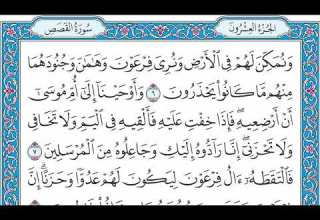 الجُزْءُ العِشْرُونَ سُورَةُ القَصَصِ
وَنُمَكِّنَ لَهُمْ فِي ٱلْأَرْضِ وَنُرِيَ فِرْعَوْنَ وَهَٰمَٰنَ وَجُنُودَهُمَا
مِنْهُم مَّا كَانُوا۟ يَحْذَرُونَ ٦ وَأَوْحَيْنَآ إِلَىٰٓ أُمِّ مُوسَىٰٓ
أَنْ أَرْضِعِيهِ ۖ فَإِذَا خِفْتِ عَلَيْهِ فَأَلْقِيهِ فِي ٱلْيَمِّ وَلَا تَخَافِي
وَلَا تَحْزَنِيٓ ۖ إِنَّا رَآدُّوهُ إِلَيْكِ وَجَاعِلُوهُ مِنَ ٱلْمُرْسَلِينَ ٧
فَٱلْتَقَطَهُۥٓ ءَالُ فِرْعَوْنَ لِيَكُونَ لَهُمْ عَدُوًّا وَحَزَنًا ۗ إِنَّ